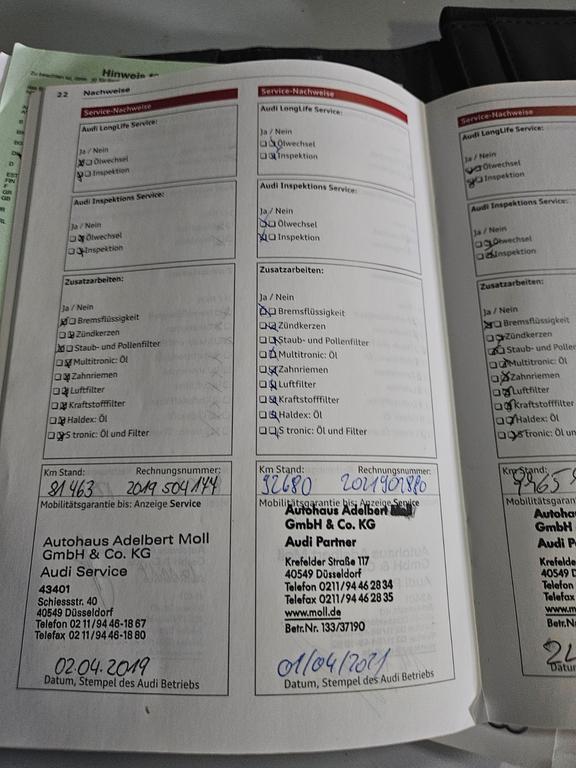 Hinweis
22 Nachweise
Service-Nachweise
Audi LongLife Service:
Ja / Nein
Ölwechsel
Inspektion
Audi Inspektions Service:
Ja / Nein
Ölwechsel
Inspektion
Zusatzarbeiten:
Ja / Nein
Bremsflüssigkeit
Zündkerzen
Staub- und Pollenfilter
Multitronic: Öl
Zahnriemen
Luftfilter
Kraftstofffilter
Haldex: Öl
S tronic: Öl und Filter
Km Stand: Rechnungsnummer:
81463 2019 504144
Mobilitätsgarantie bis: Anzeige Service
Autohaus Adelbert Moll
GmbH & Co. KG
Audi Service
43401
Schiessstr. 40
40549 Düsseldorf
Telefon 02 11/94 46-18 67
Telefax 02 11/94 46-18 80
02.04.2019
Datum, Stempel des Audi Betriebs
Service-Nachweise
Audi LongLife Service:
Ja / Nein
Ölwechsel
Inspektion
Audi Inspektions Service:
Ja / Nein
Ölwechsel
Inspektion
Zusatzarbeiten:
Ja / Nein
Bremsflüssigkeit
Zündkerzen
Staub- und Pollenfilter
Multitronic: Öl
Zahnriemen
Luftfilter
Kraftstofffilter
Haldex: Öl
S tronic: Öl und Filter
Km Stand: Rechnungsnummer:
92680 2021901880
Mobilitätsgarantie bis: Anzeige Service
Autohaus Adelbert
GmbH & Co. KG
Audi Partner
Krefelder Straße 117
40549 Düsseldorf
Telefon 0211/94 46 28 34
Telefax 0211/94 46 28 35
www.moll.de
Betr.Nr. 133/37190
01/04/2021
Datum, Stempel des Audi Betriebs
Service-Nachweise
Audi LongLife Service:
Ja / Nein
Ölwechsel
Inspektion
Audi Inspektions Service:
Ja / Nein
Ölwechsel
Inspektion
Zusatzarbeiten:
Ja / Nein
Bremsflüssigkeit
Zündkerzen
Staub- und Polle
Multitronic: Öl
Zahnriemen
Luftfilter
Kraftstofffilter
Haldex: Öl
S tronic: Öl un
Km Stand:
Mobilitätsgaran
Autoha
GmbH
Audi P
Krefelde
40549 D
Telefon
Telefax
www.m
Betr.N
Datu